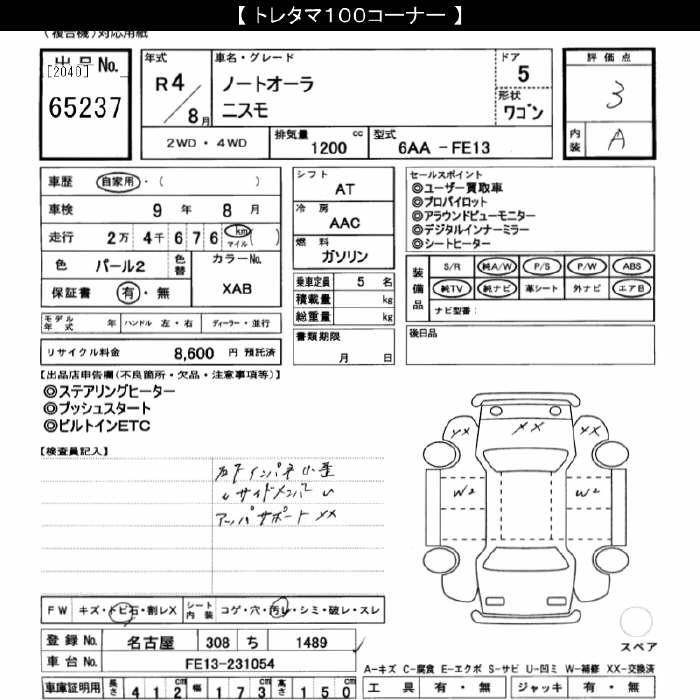 【 トレタマ100コーナー 】
(複合機)対応用紙
出品No. [2040] 65237
年式 R4/8月
車名・グレード ノートオーラ ニスモ
ドア 5
形状 ワゴン
評価点 3
内装 A
2WD・4WD
排気量 1200 cc
型式 6AA-FE13
車歴 自家用・( )
車検 9年8月
走行 2万4千676 km マイル ( )
色 パール2 色替
カラーNo. XAB
保証書 有・無
モデル年式 年 ハンドル 左・右 ディーラー・並行
リサイクル料金 8,600 円 預託済
シフト AT
冷房 AAC
燃料 ガソリン
乗車定員 5 名
積載量 kg
総重量 kg
書類期限 月 日
セールスポイント
◎ユーザー買取車
◎プロパイロット
◎アラウンドビューモニター
◎デジタルインナーミラー
◎シートヒーター
装備品 S/R 純A/W P/S P/W ABS
純TV 純ナビ 革シート 外ナビ エアB
ナビ型番:
後日品
【出品店申告欄(不良箇所・欠品・注意事項等)】
◎ステアリングヒーター
◎プッシュスタート
◎ビルトインETC
【検査員記入】
インパネ
サイドメンバー
アッパサポート XX
XX XX XX
W2 W2
FW キズ・トビ石・割レX シート内装 コゲ・穴・汚レ・シミ・破レ・スレ
登録No. 名古屋 308 ち 1489
車台No. FE13-231054
車庫証明用 長さ 412cm 幅 173cm 高さ 150cm
スペア
A-キズ C-腐食 E-エクボ S-サビ U-凹ミ W-補修 XX-交換済
工具 有・無 ジャッキ 有・無